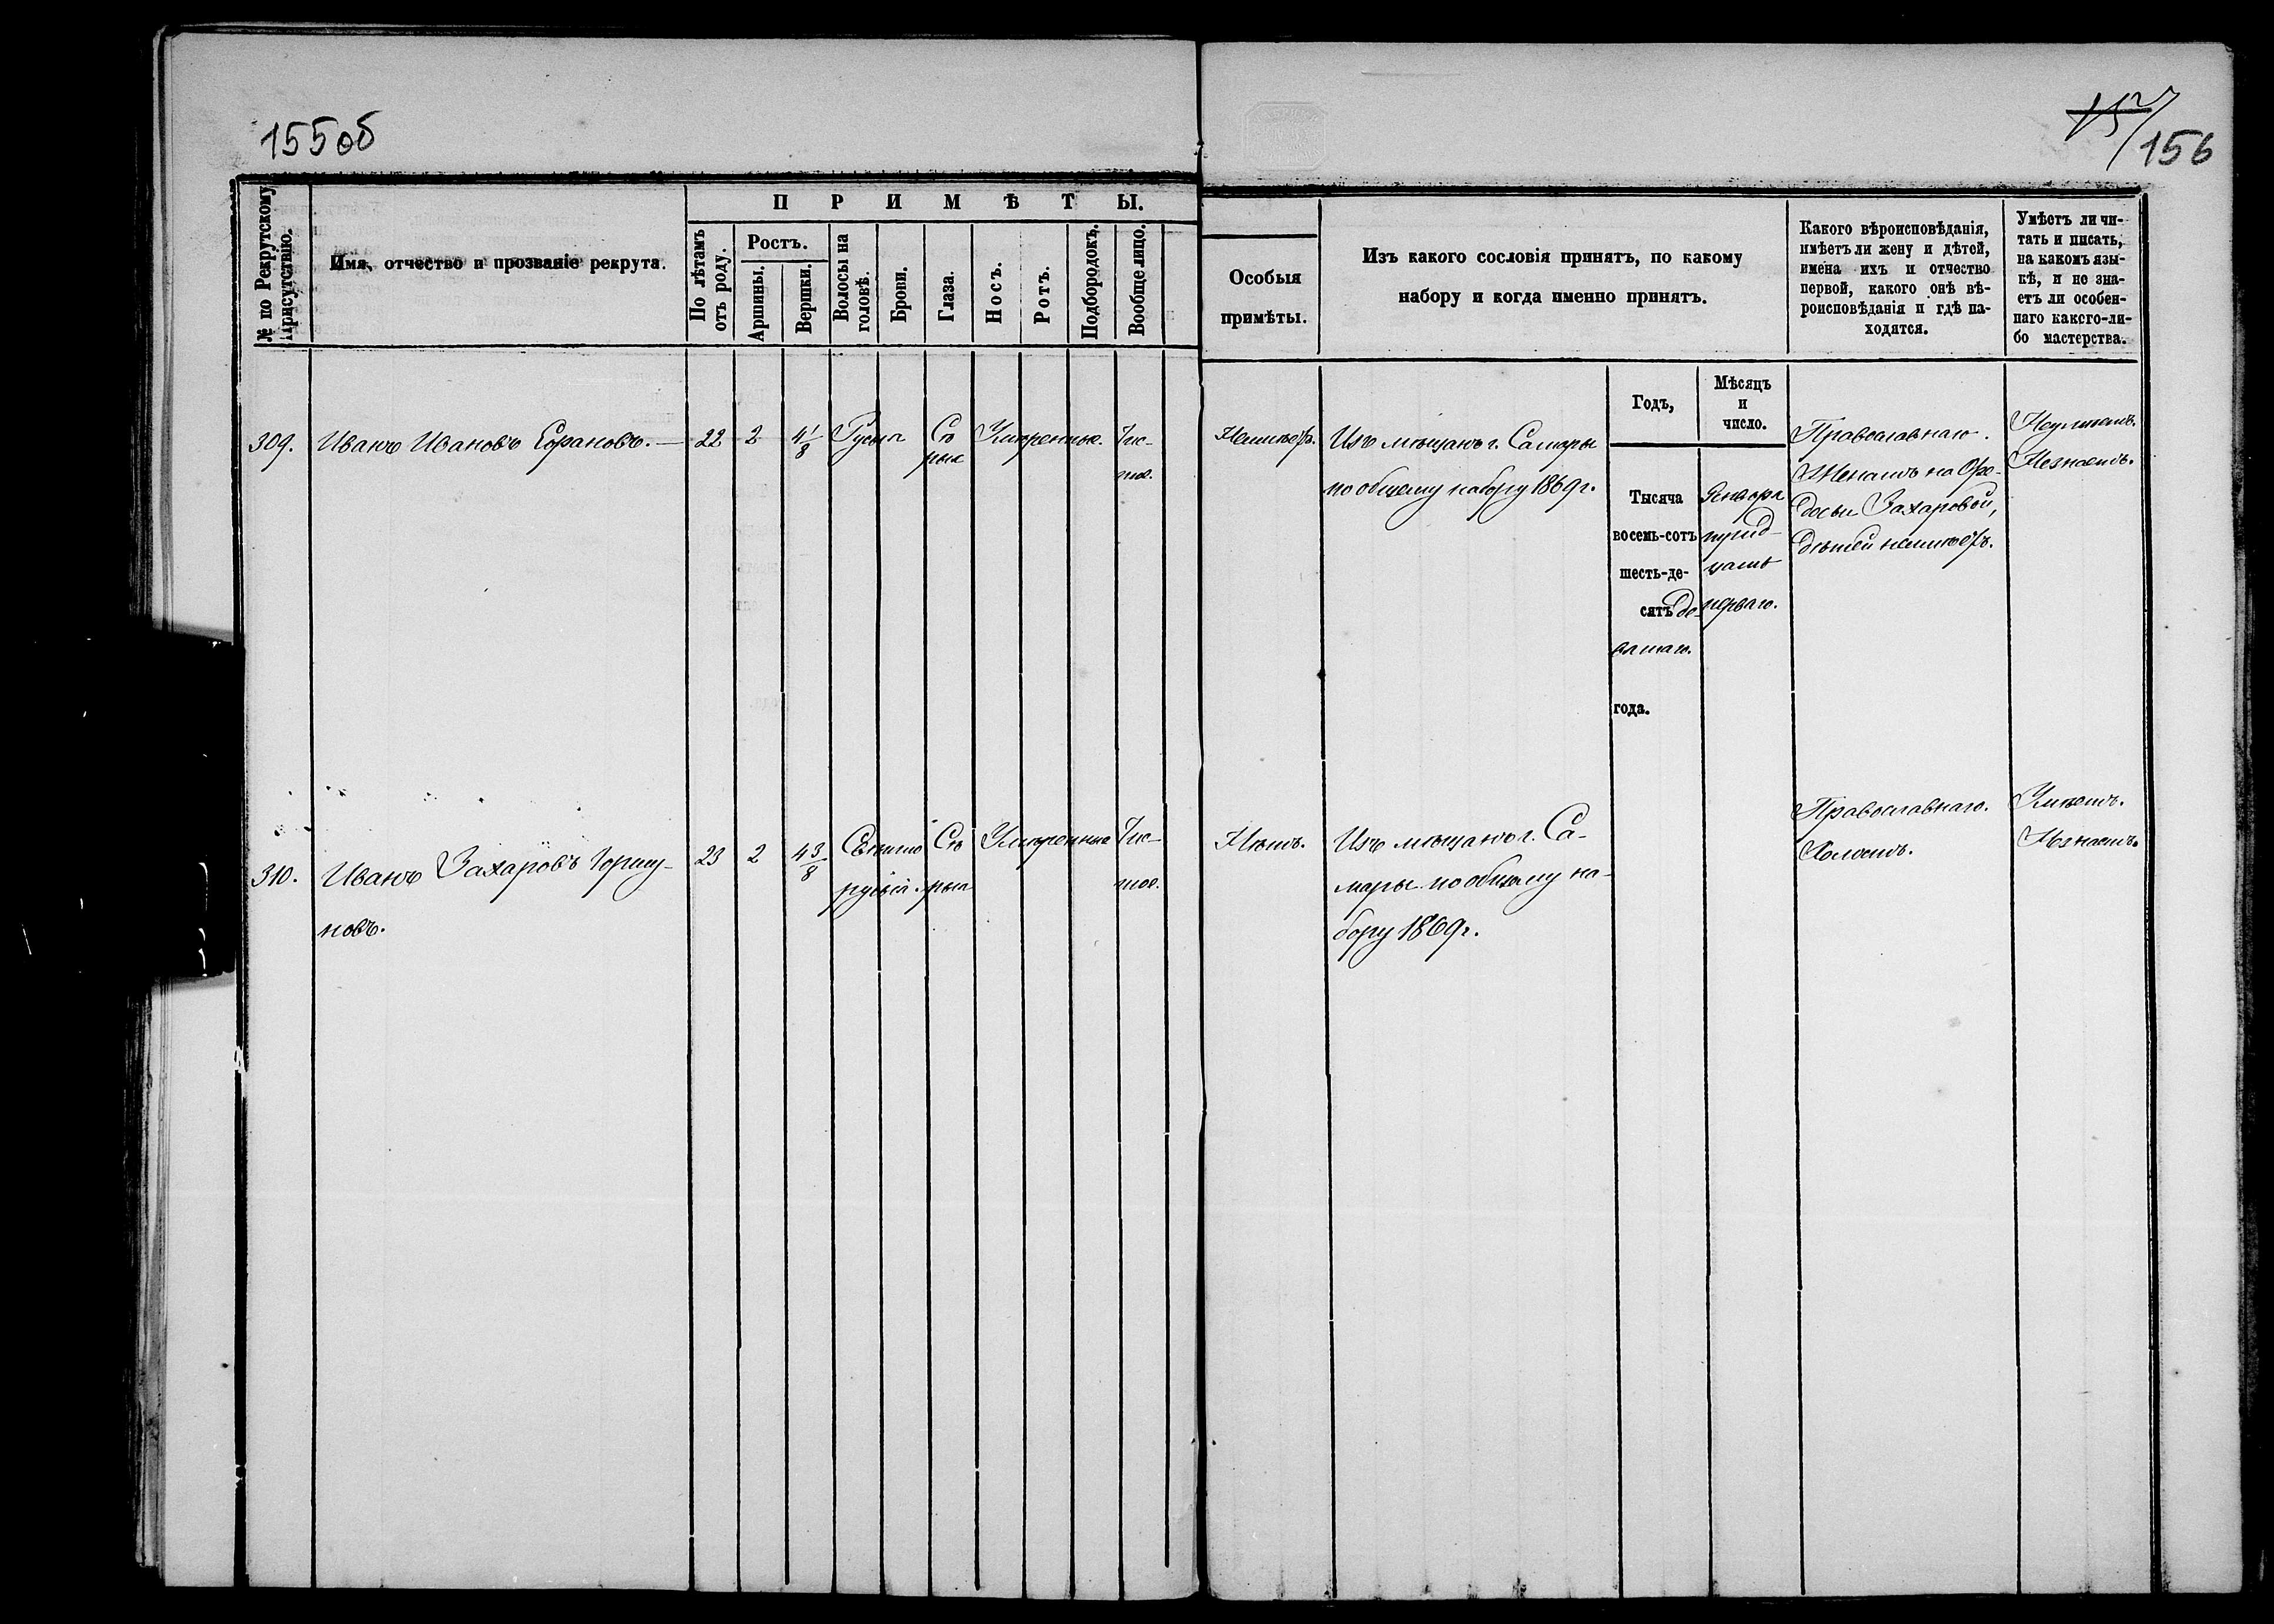 155об
157
156
№ по Рекрутскому Присутствію.
Имя, отчество и прозваніе рекрута.
ПРИМѢТЫ.
По лѣтамъ отъ роду.
Ростъ.
Аршины.
Вершки.
Волосы на головѣ.
Брови.
Глаза.
Носъ.
Ротъ.
Подбородокъ.
Вообще лицо.
Особыя
примѣты.
Изъ какого сословія принятъ, по какому
набору и когда именно принятъ.
Какого вѣроисповѣданія,
имѣетъ ли жену и дѣтей,
имена ихъ и отчество
первой, какого онѣ вѣ-
роисповѣданія и гдѣ на-
ходятся.
Умѣетъ ли чи-
тать и писать,
на какомъ язы-
кѣ, и не зна-
етъ ли особен-
наго какого-ли-
бо мастерства.
Годъ,
Мѣсяцъ
и
число.
309. Иванъ Ивановъ 22 2 4 1/8 Русыя Сѣ- Умѣренные Чис-
рые тое.
Неимѣетъ. Изъ мѣщанъ г. Самары
по общему набору 1869 г.
Тысяча
восемь-сотъ
шесть-де-
сятъ де-
вятаго
года.
Января
трид-
цать
перваго.
Православнаго.
Женатъ на Фео-
досьи Захаровой,
дѣтей неимѣетъ.
Неумѣетъ.
Незнаетъ.
310. Иванъ Захаровъ Горшу- 23 2 4 3/8 Свѣтло Сѣ Умѣренные Чис-
новъ. русыя. рыя тое.
Нѣтъ. Изъ мѣщанъ г. Са-
мары по общему на-
бору 1869 г.
Православнаго.
Холостъ.
Умѣетъ.
Незнаетъ.